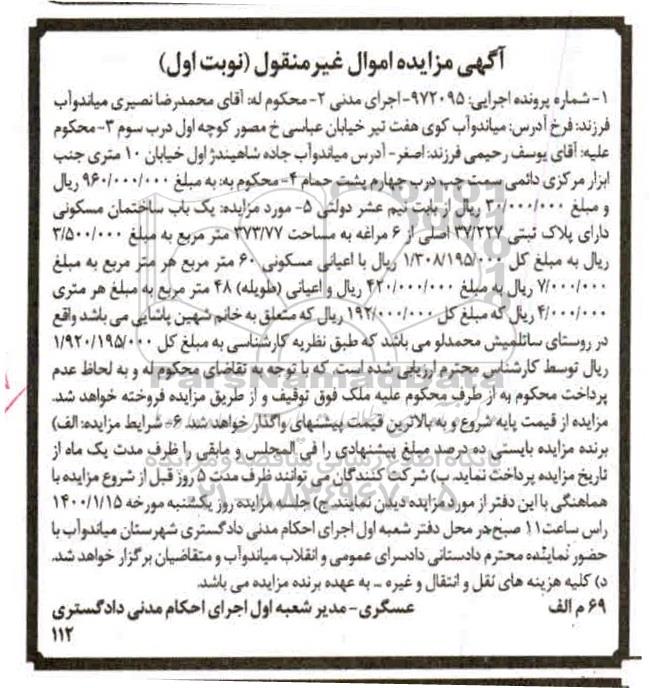 آگهی مزایده اموال غیر منقول (نوبت اول)
۱- شماره پرونده اجرایی: ۹۷۲۰۹۵-اجرای مدنی ۲- محکوم له: آقای محمدرضا نصیری میاندوآب
فرزند: فرخ آدرس: میاندوآب کوی هفت تیر خیابان عباسی خ مصور کوچه اول درب سوم ۳- محکوم
علیه: آقای یوسف رحیمی فرزند: اصغر- آدرس میاندوآب جاده شاهیندژ اول خیابان ۱۰ متری جنب
ابزار مرکزی دائمی سمت چپ درب چهارم پشت حمام ۴- محکوم به: به مبلغ ۹۶۰/۰۰۰/۰۰۰ ریال
و مبلغ ۳۰/۰۰۰/۰۰۰ ریال از بابت نیم عشر دولتی ۵- مورد مزایده: یک باب ساختمان مسکونی
دارای پلاک ثبتی ۳۷/۲۲۷ اصلی از ۶ مراغه به مساحت ۳۷۳/۷۷ متر مربع به مبلغ ۳/۵۰۰/۰۰۰
ریال به مبلغ کل ۱/۳۰۸/۱۹۵/۰۰۰ ریال با اعیانی مسکونی ۶۰ متر مربع هر متر مربع به مبلغ
۷/۰۰۰/۰۰۰ ریال به مبلغ ۴۲۰/۰۰۰/۰۰۰ ریال و اعیانی (طویله) ۴۸ متر مربع به مبلغ هر متری
۴/۰۰۰/۰۰۰ ریال که مبلغ کل ۱۹۲/۰۰۰/۰۰۰ ریال که متعلق به خانم شهین پاشایی می باشد واقع
در روستای ساتلمیش محمدلو می باشد که طبق نظریه کارشناسی به مبلغ کل ۱/۹۲۰/۱۹۵/۰۰۰
ریال توسط کارشناس محترم ارزیابی شده است. که با توجه به تقاضای محکوم له و به لحاظ عدم
پرداخت محکوم به از طرف محکوم علیه ملک فوق توقیف و از طریق مزایده فروخته خواهد شد.
مزایده از قیمت پایه شروع و به بالاترین قیمت پیشنهای واگذار خواهد شد. ۶- شرایط مزایده: الف)
برنده مزایده بایستی ده درصد مبلغ پیشنهادی را فی المجلس و مابقی را ظرف مدت یک ماه از
تاریخ مزایده پرداخت نماید. ب) شرکت کنندگان می توانند ظرف مدت ۵ روز قبل از شروع مزایده با
هماهنگی با این دفتر از مورد مزایده دیدن نمایند. ج) جلسه مزایده روز یکشنبه مورخه ۱۴۰۰/۱/۱۵
راس ساعت ۱۱ صبح در محل دفتر شعبه اول اجرای احکام مدنی دادگستری شهرستان میاندوآب با
حضور نماینده محترم دادستانی دادسرای عمومی و انقلاب میاندوآب و متقاضیان برگزار خواهد شد.
د) کلیه هزینه های نقل و انتقال و غیره ... به عهده برنده مزایده می باشد.
۶۹ م الف عسگری - مدیر شعبه اول اجرای احکام مدنی دادگستری
۱۱۲
ParsNamadData
۰۲۱-۸۸۳۴۹۶۷۰-۵